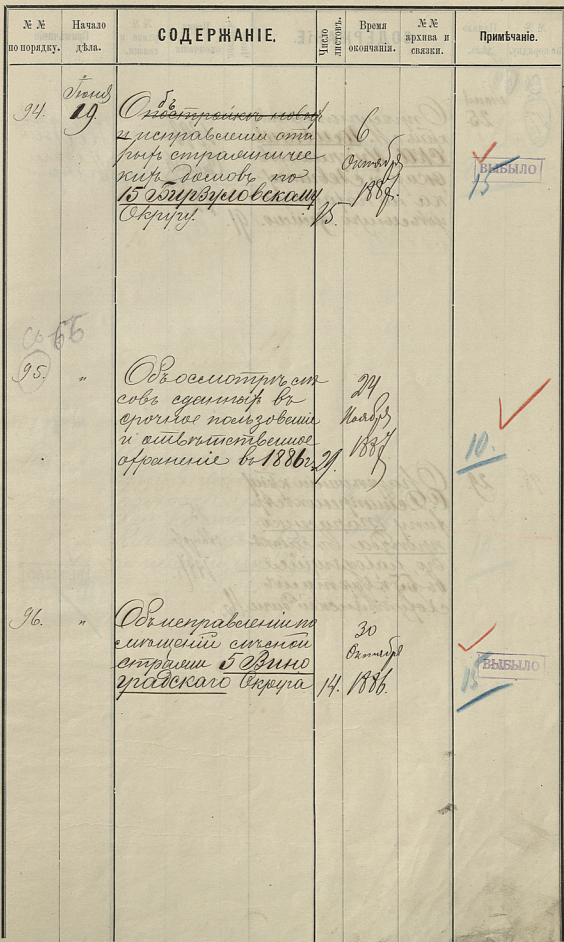 № № по порядку.
Начало дѣла.
СОДЕРЖАНІЕ.
Число листовъ.
Время окончанія.
№ № архива и связки.
Примѣчаніе.
94.
Іюня
19
Объ постройкѣ новыхъ
и исправленіи ста
рыхъ стражничес
кихъ домовъ по
15 Бирзуловскому
Округу.
15.
6
Октября
1887.
15
ВЫБЫЛО
66
95.
"
Объ осмотрѣ лѣ
совъ сданныхъ въ
срочное пользованіе
и отвѣтственное
охраненіе въ 1886 г.
29.
24
Ноября
1887
10.
96.
"
Объ исправленіи по
мѣщеній лѣсной
стражи 5 Вино
градскаго Округа
14.
30
Октября
1886.
15
ВЫБЫЛО